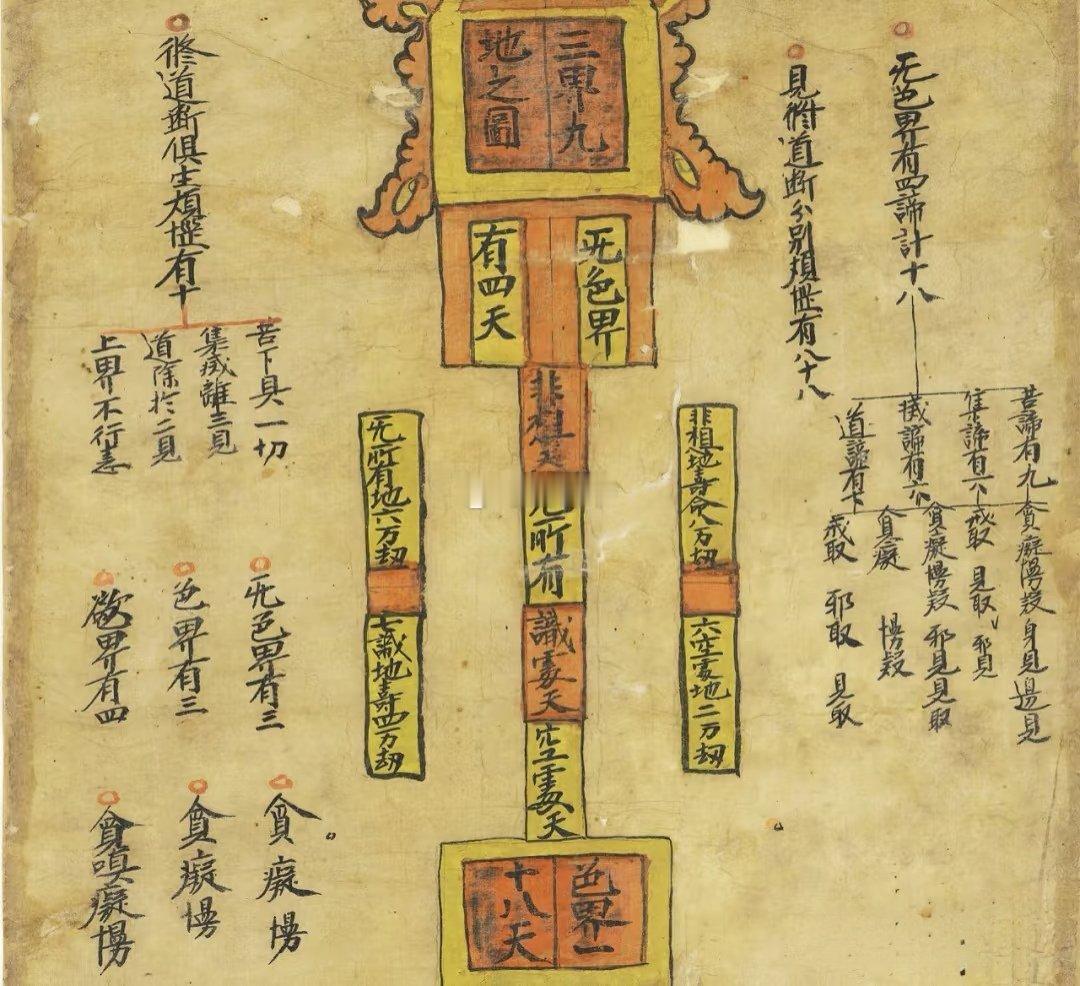 无色界有四諦計十八
苦諦有九
集諦有六
滅諦有六
道諦有七
貪癡慢疑身見邊見
戒取 見取 邪見
貪癡慢疑邪見見取
貪癡 慢疑
戒取 邪取 見取
見修道断分别煩惱有八十八
三界九
地之圖
无色界
有四天
非想天
无所有
識處天
空處天
非想地壽命八万劫
六空處地二万劫
无所有地六万劫
七識地壽四万劫
色界一
十八天
修道断俱生煩惱有十
苦下具一切
集滅離三見
道除於二見
上界不行恚
无色界有三
色界有三
欲界有四
貪癡慢
貪癡慢
貪嗔癡慢